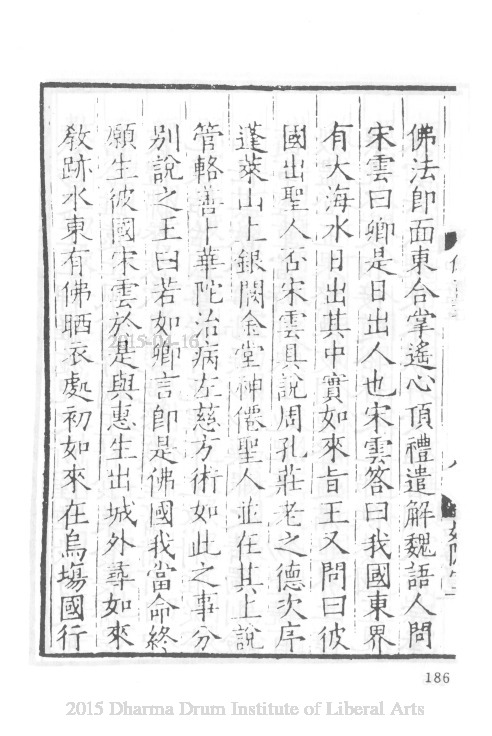 佛法即面東合掌遙心頂禮遣解魏語人問
宋雲曰卿是日出人也宋雲答曰我國東界
有大海水日出其中實如來旨王又問曰彼
國出聖人否宋雲具說周孔莊老之德次序
蓬萊山上銀闕金堂神僊聖人並在其上說
管輅善卜華陀治病左慈方術如此之事分
別說之王曰若如卿言即是佛國我當命終
願生彼國宋雲於是與惠生出城外尋如來
教跡水東有佛晒衣處初如來在烏塲國行
2015-04-16
186
2015 Dharma Drum Institute of Liberal Arts